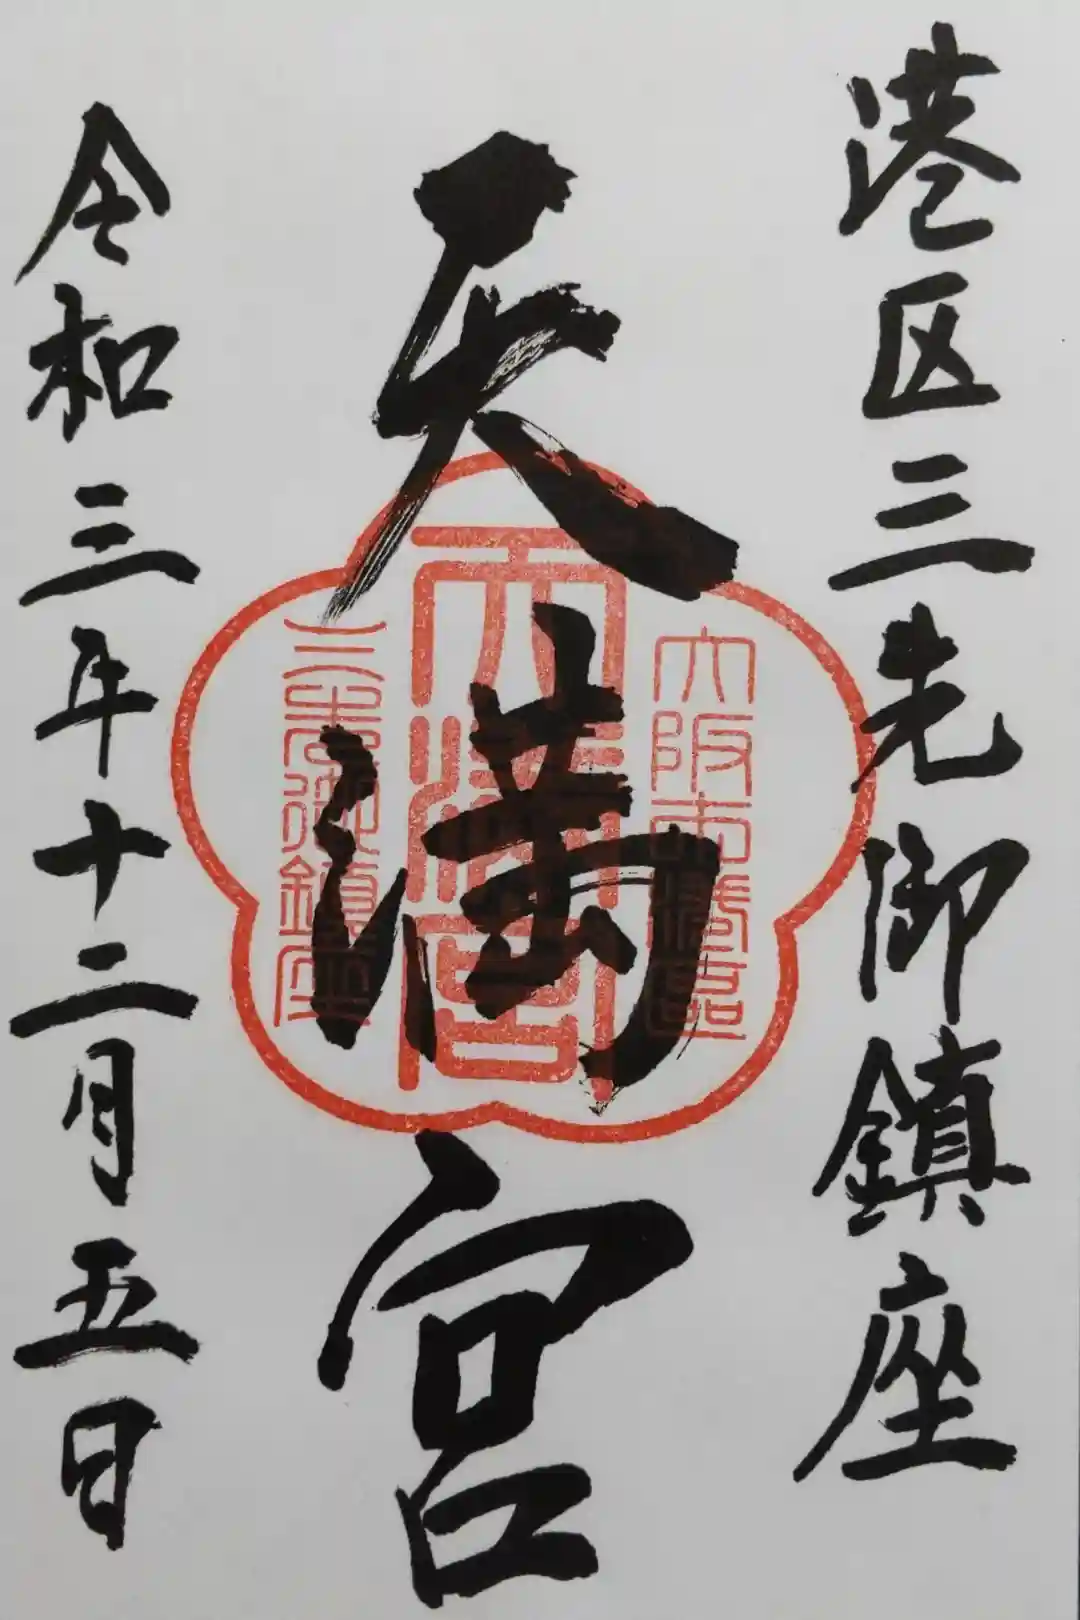 港区三先御鎮座
天満宮
令和三年十二月五日
大阪市港区
天満宮
三先御鎮座